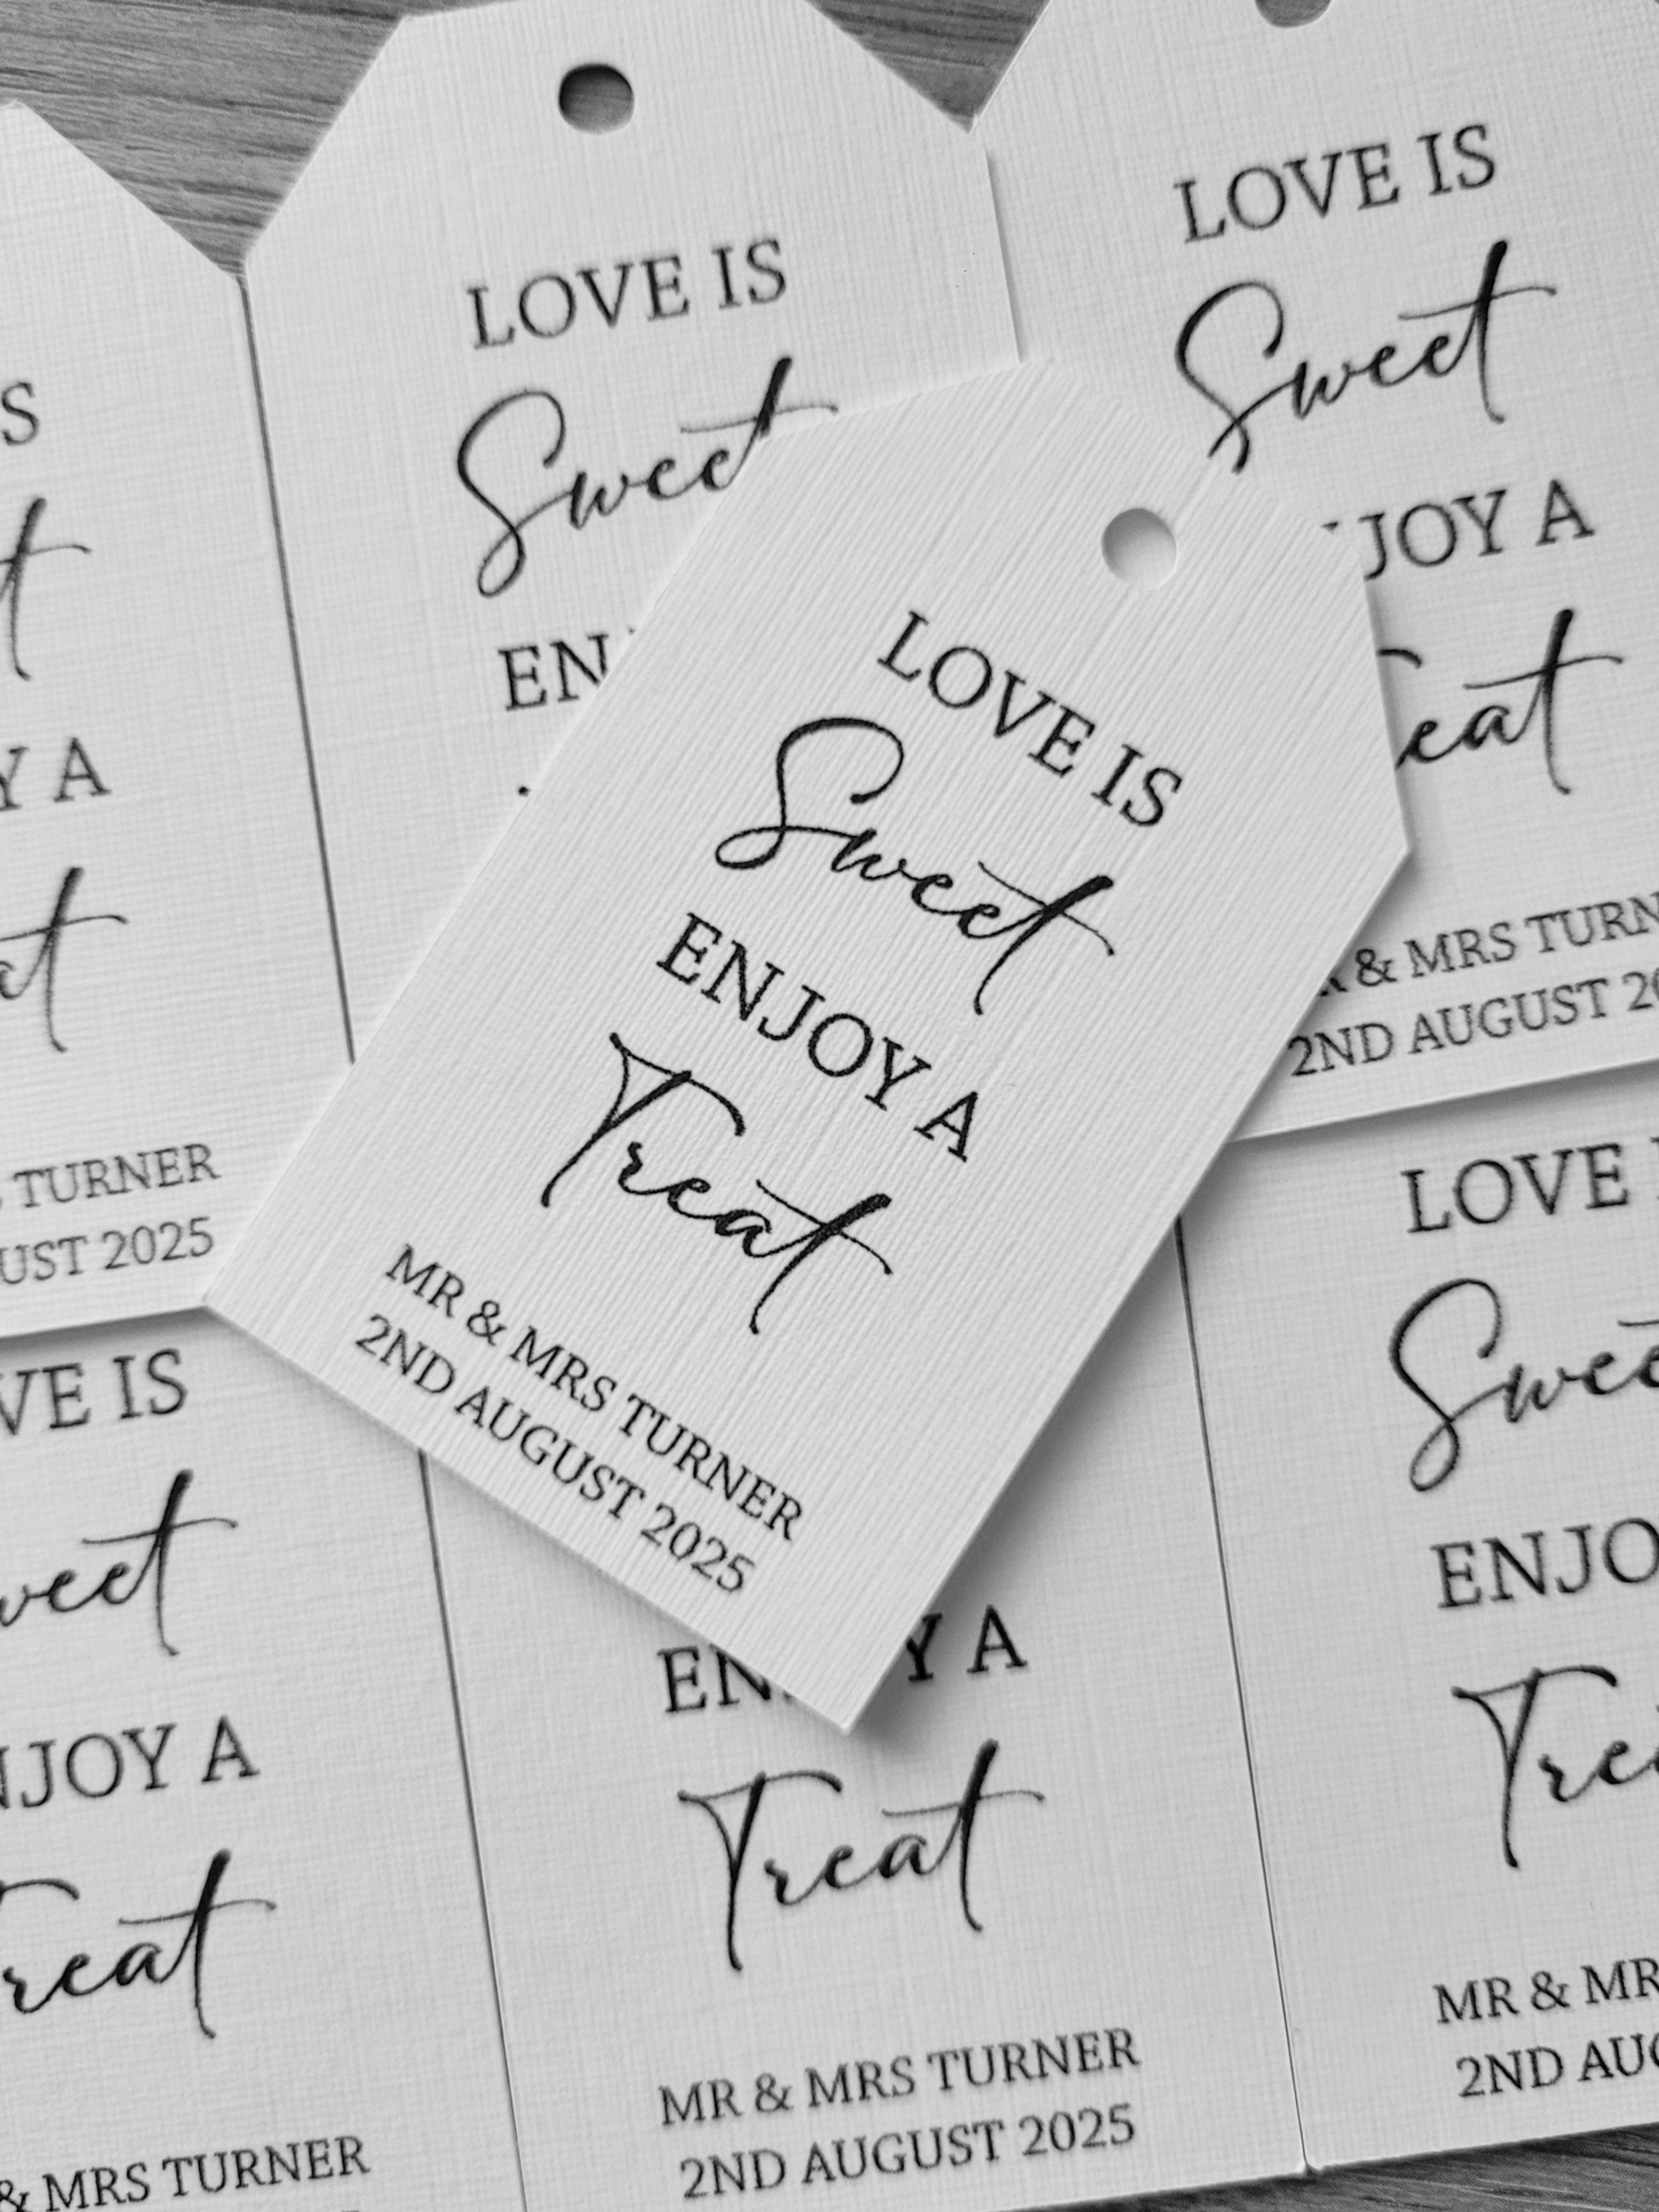 LOVE IS
Sweet
EN
LOVE IS
Sweet
JOY A
eat
& MRS TURN
2ND AUGUST 20
S
t
Y A
at
TURNER
UST 2025
LOVE IS
Sweet
ENJOY A
Treat
MR & MRS TURNER
2ND AUGUST 2025
VE IS
weet
NJOY A
reat
& MRS TURNER
EN Y A
Treat
MR & MRS TURNER
2ND AUGUST 2025
LOVE
Swee
ENJO
Trea
MR & MR
2ND AUG